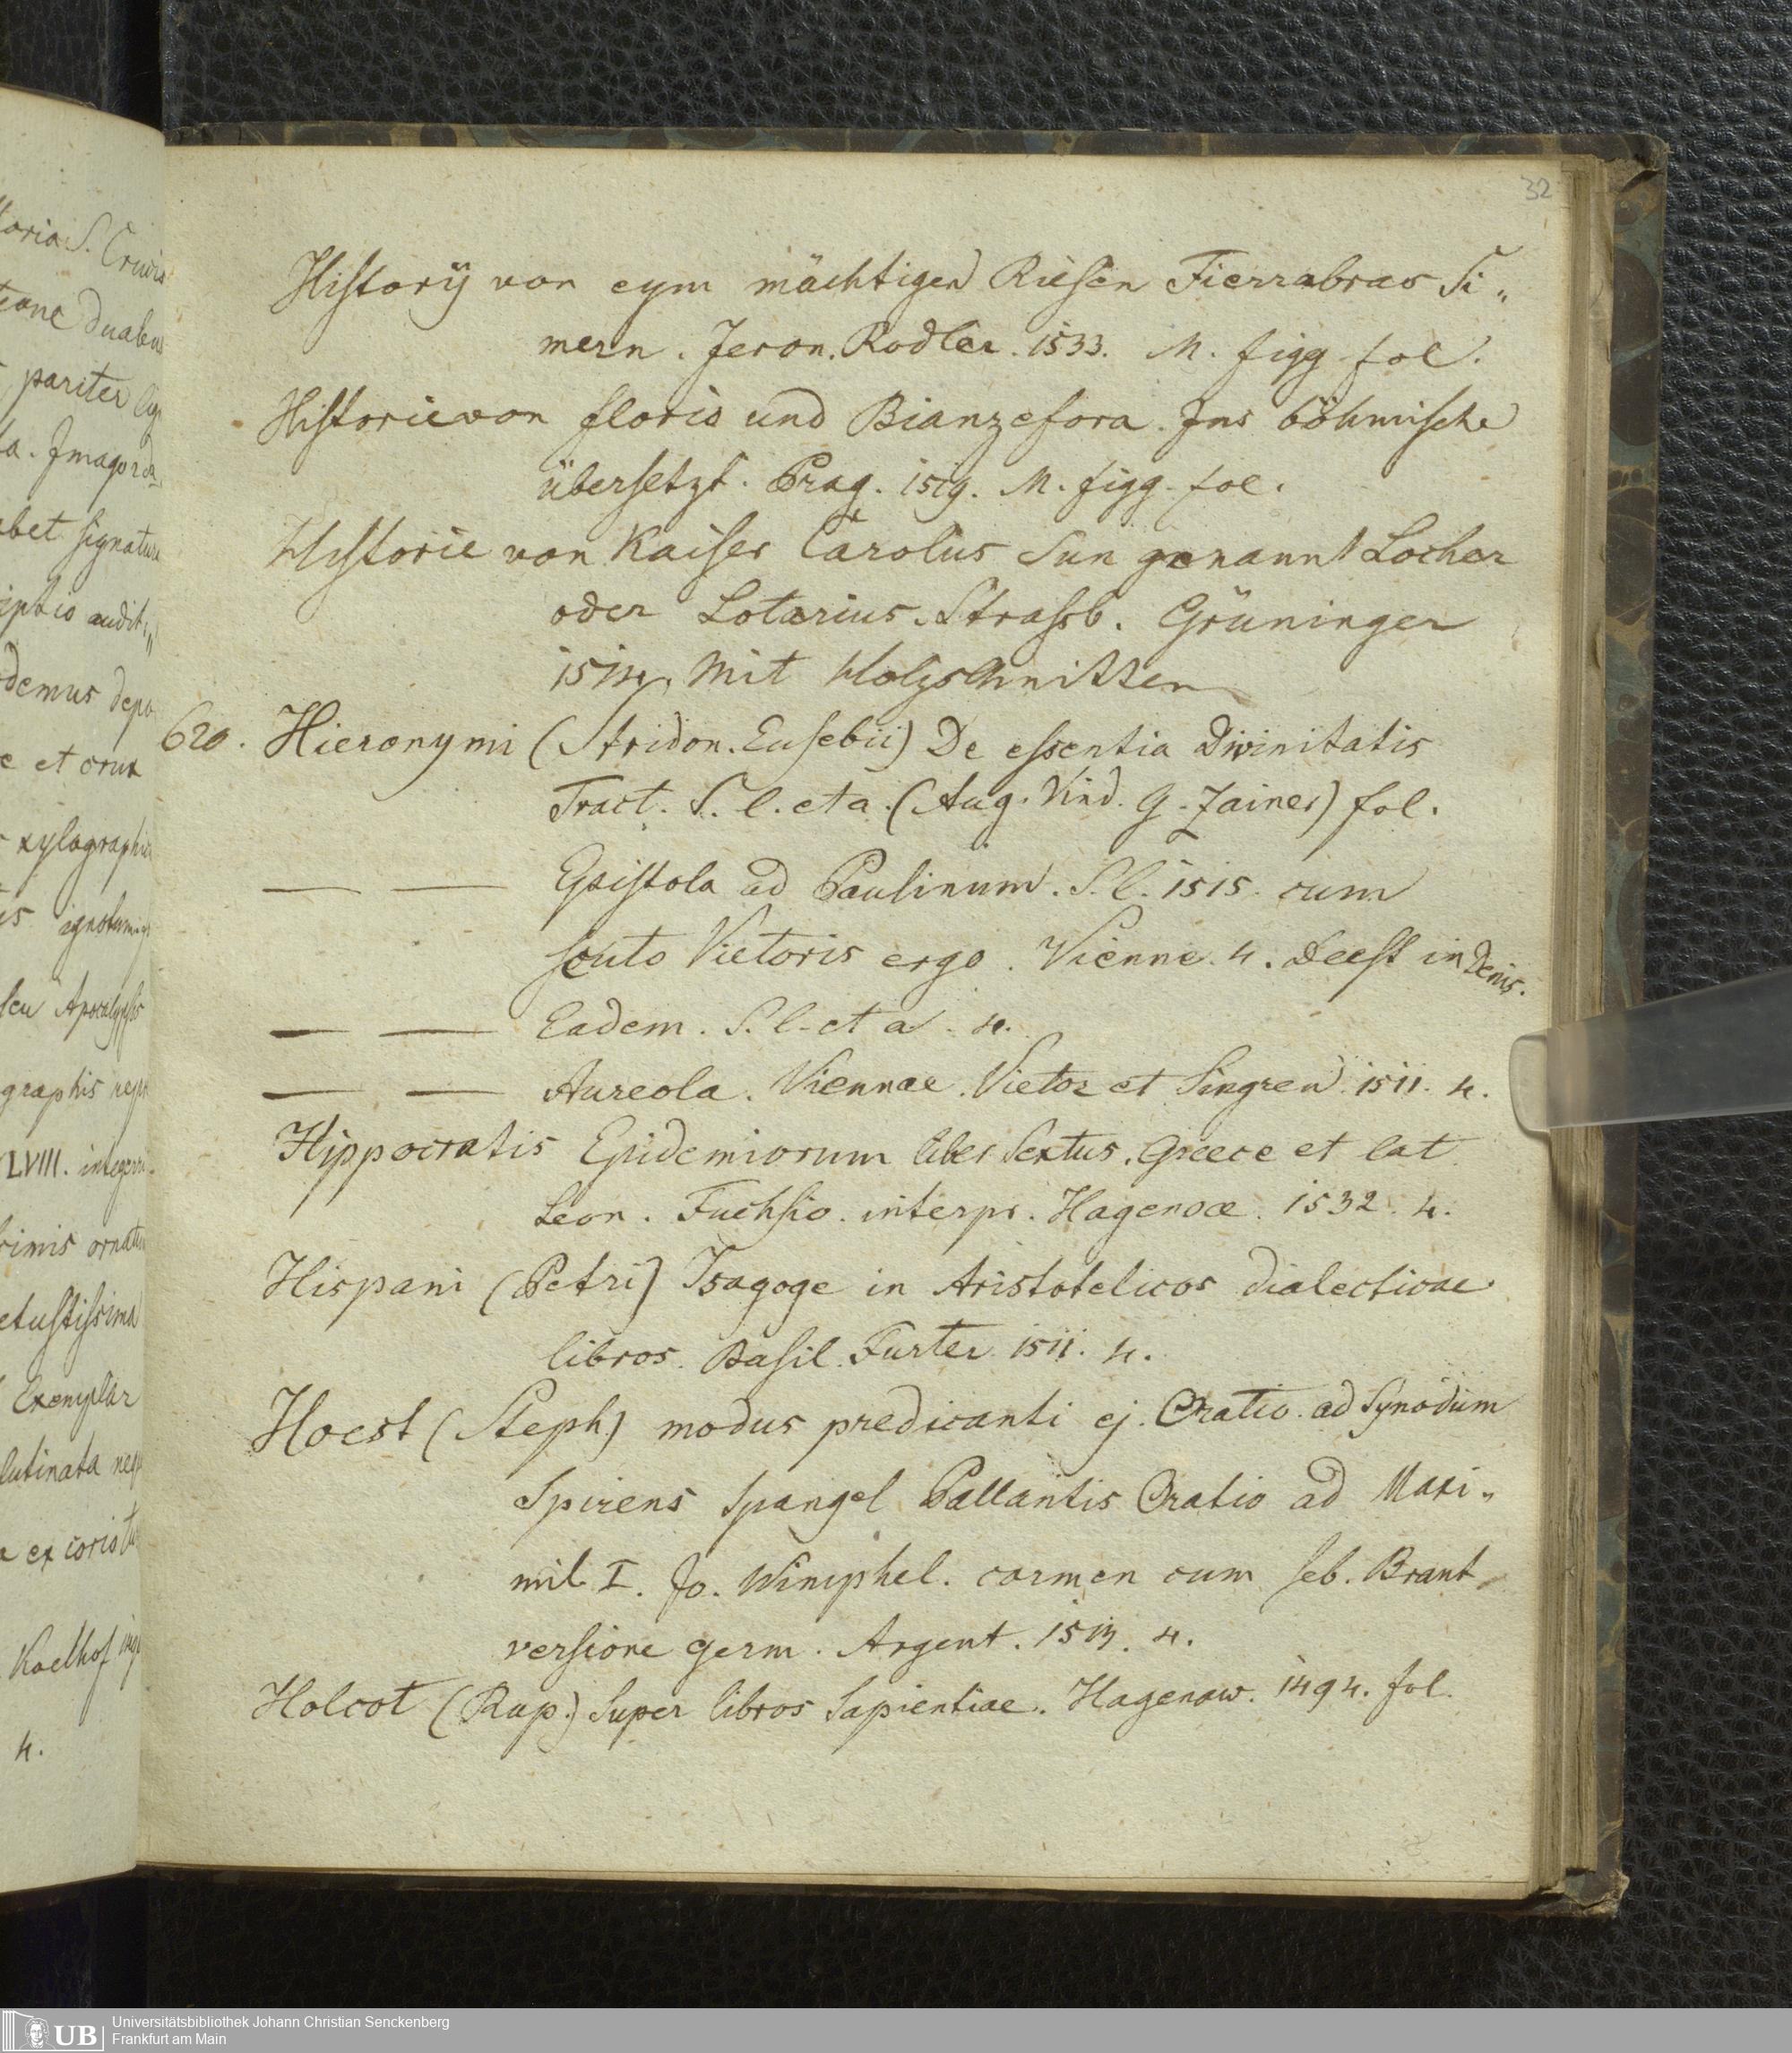 32
History von eym mächtigen Riesen Fierrabras Si„
mern. Jeron. Rodler. 1533. M. figg fol.
Historie von floris und Bianzefora. Ins böhmische
übersetzt. Prag. 1519. M. figg. fol.
Historie von Kaiser Carolus Sun genannt Locher
oder Lotarius. Strassb. Grüninger
Mit Holzschnitten
620. Hieronymi (Stridon. Eusebii) De essentia Divinitatis
Tract. S. l. et a. (Aug. Vind. G. Zainer) fol.
— — Epistola ad Paulinum. S. l. 1515. cum
scuto Vietoris ergo. Vienne. 4. Deest in Denis.
— — Eadem. S. l. et a. 4.
— — Aureola. Viennae. Vietor et Singren. 1511. 4.
Hippocratis Epidemiorum liber Sextus. Greece et lat
Leon. Fuchsio. interpr. Hagenoæ. 1532. 4.
Hispani (Petri) Isagoge in Aristotelicos dialecticae
libros. Basil. Furter. 1511. 4.
Hoest (Steph) modus predicanti ej. Oratio. ad Synodum
Spirens Spangel Pallantis Oratio ad Maxi„
mil. I. Jo. Wimphel. carmen cum Seb. Brant
versione germ. Argent. 1513. 4.
Holcot (Rup.) Super libros Sapientiae. Hagenaw. 1494. fol.
toria S. Crucis
duabus
pariter
a. Imago
bet signatura
iptio
demus
e et crux
xylographi
seu Apocalypsis
graphis
LVIII.
rimis
etustissima
Exemplar
lutinata
Koelhof
4.
UB
Universitätsbibliothek Johann Christian Senckenberg
Frankfurt am Main